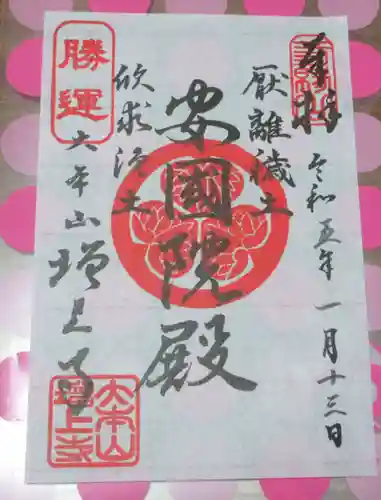 奉拝
令和五年一月十三日
厭離穢土
安國院殿
欣求浄土
勝運
大本山増上寺
大本山
増上寺